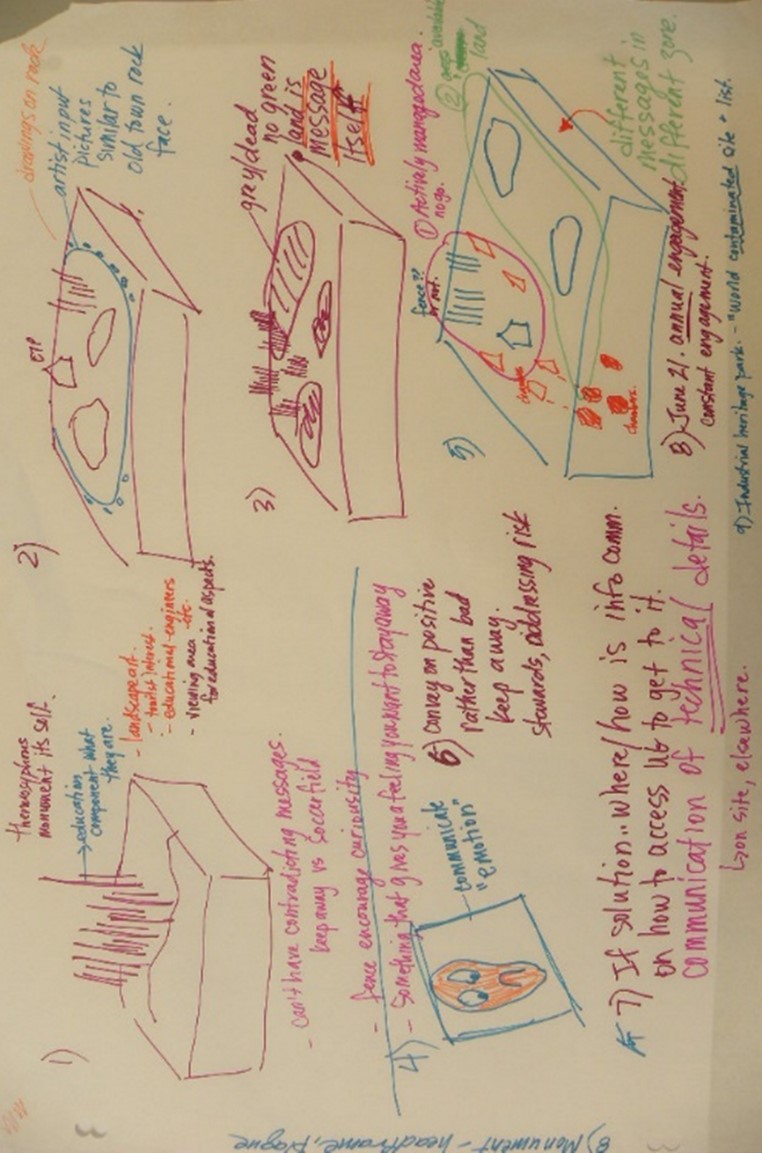 1)
thermosyphons
monument its self.
→ education
component what
they are.
- landscape art.
- tourist interest.
- educational-engineers
etc.
- viewing area
for educational aspects.
- can't have contradicting messages.
keep away vs soccerfield
- fence encourage curiousity
2)
ETP
drawings on rock
artist input
pictures
similar to
old town rock
face.
3)
grey/dead
no green
• land is
message
itself
4) - Something that gives you a feeling you want to stay away
communicate
"emotion"
5)
fence??
or not.
① Actively managed area.
no go.
② available
land
different
messages in
different zone.
chambers.
6) convey on positive
rather than bad
keep away.
stewards, addressing risk
7) If solution.. where/how is info comm.
on how to access US to get to it.
communication of technical details.
↳ on site, elsewhere.
8) June 21. annual engagement.
constant engagement.
9) Industrial heritage park. - "world contaminated site" list.
8) Monument - headframe, plaque